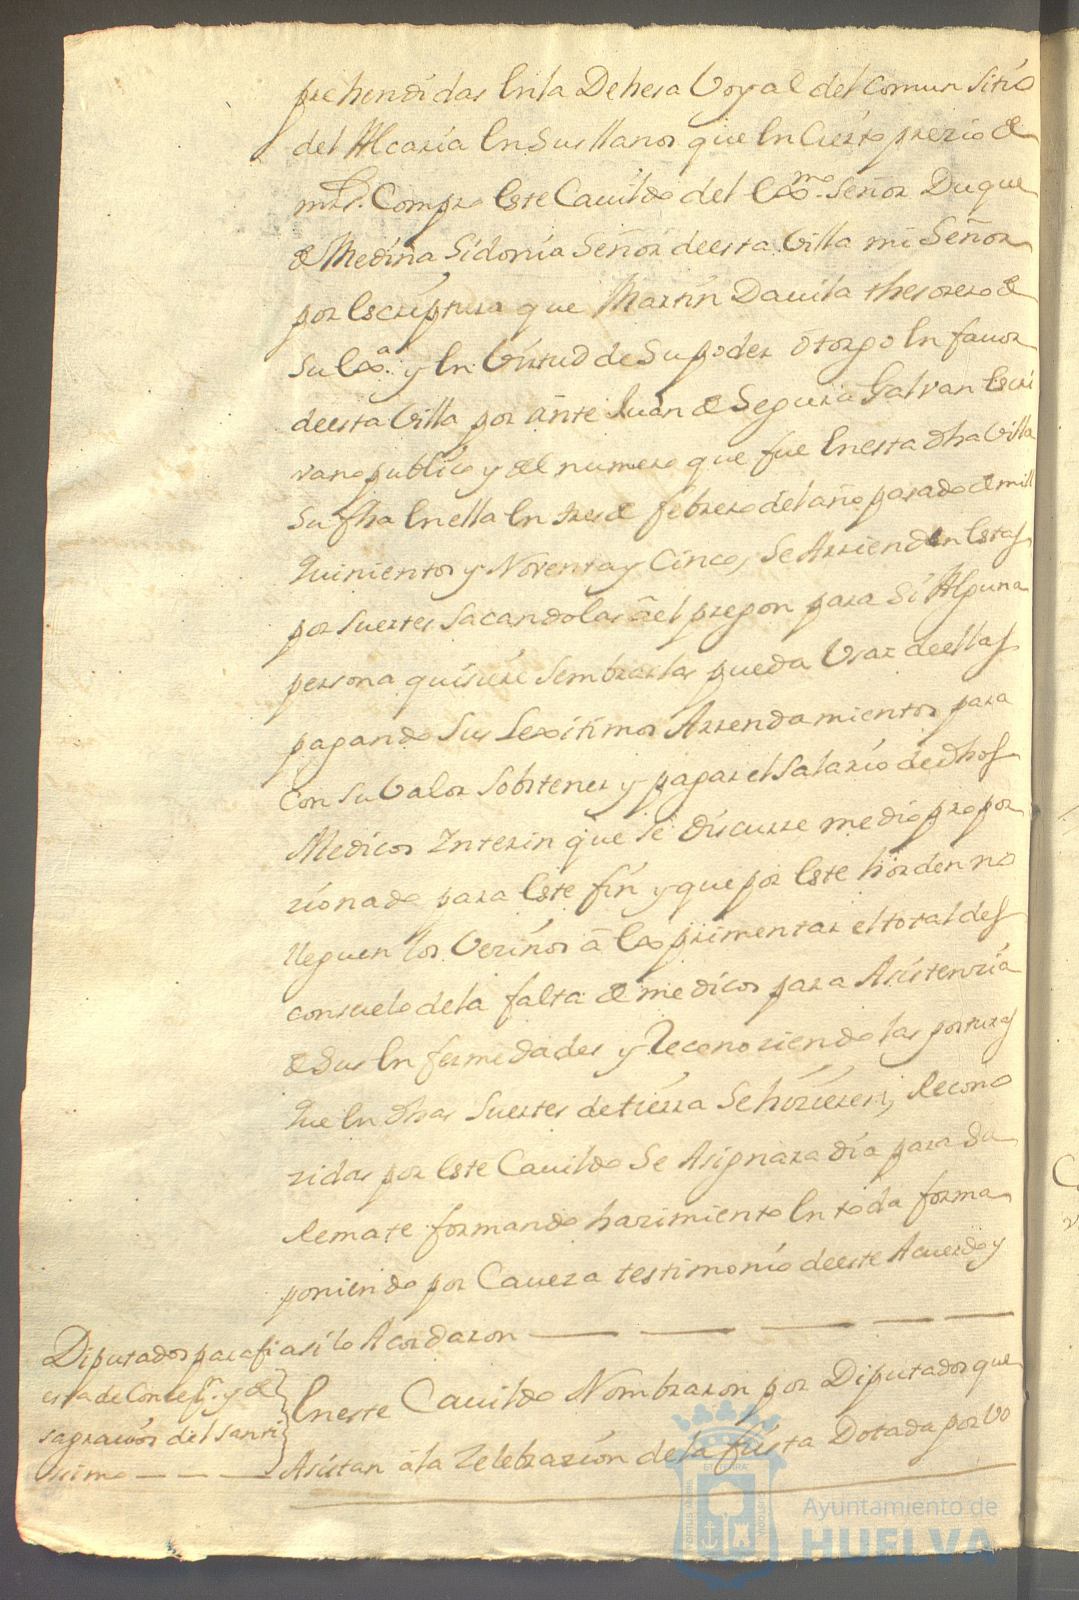 prehendidas En la Dehesa Boyal del comun Sitio
del Alcaria En Sus llanos que En Cierto prezio de
mrs. Compro Este Cauildo del Exmo. Señor Duque
de Medina Sidonia Señor de esta Villa mi Señor
por Escriptura que Martin Dauila thesorero de
Su Exa. y En Virtud de Su poder otorgo En fauor
de esta Villa por ante Juan de Segura Galvan Escri
vano publico y del numero que fue En esta dha Villa
Su fha En ella En tres de febrero del año pasado de mill
quinientos y Noventa y Cinco, Se Arrienden Estas
por Suertes Sacandolas a el pregon para Si Alguna
persona quisiere Sembrarlas pueda Usar de ellas
pagando Sus Lexitimos Arrendamientos para
Con Su Valor Sobstener y pagar el Salario de dhos
Medicos Interin que Se discurre medio propor
zionado para Este fin y que por Este horden no
lleguen los Vezinos a Exprimentar el total des
consuelo de la falta de medicos para Asistenzia
de Sus Enfermedades y Reconoziendo las posturas
que En dhas Suertes de tierra Se hizieren, Recono
zidas por Este Cauildo Se Asignara dia para Su
Remate formando hazimiento En toda forma
poniendo por Caueza testimonio de este Acuerdo y
asi lo Acordaron
Diputados para fi
esta de Concepn. y de
sagrarios del Santi
simo
En este Cauildo Nombraron por Diputados que
Asistan a la Zelebrazion de la fiesta Dotada por Vo
Ayuntamiento de
HUELVA